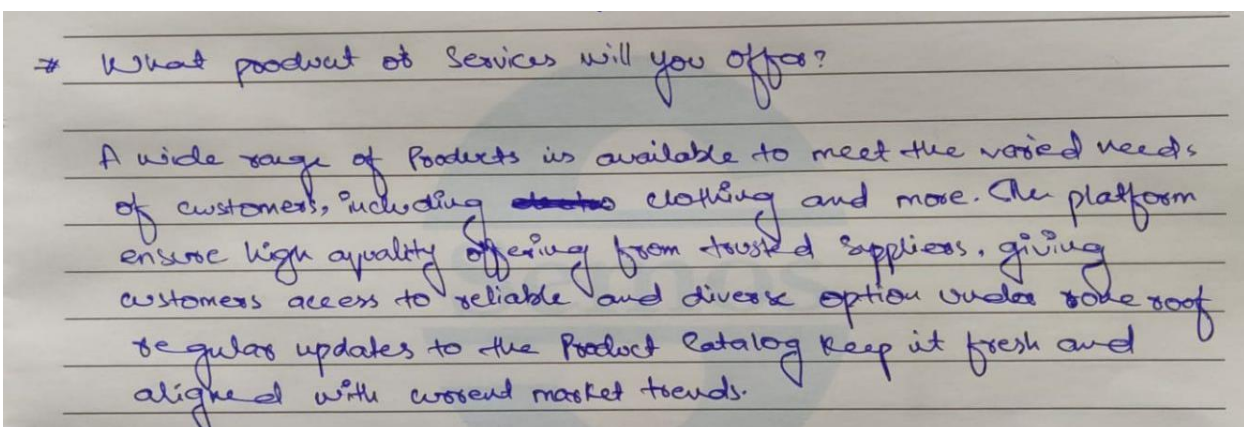 # What product of Services will you offer?
A wide range of Products is available to meet the varied needs
of customers, including clothing and more. The platform
ensure high quality offering from trusted suppliers, giving
customers access to reliable and diverse option under roof
regular updates to the Product Catalog keep it fresh and
aligned with current market trends.